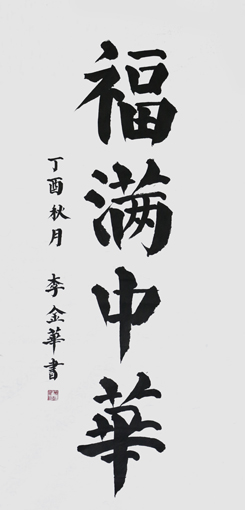 福满中華
丁酉秋月 李金華書